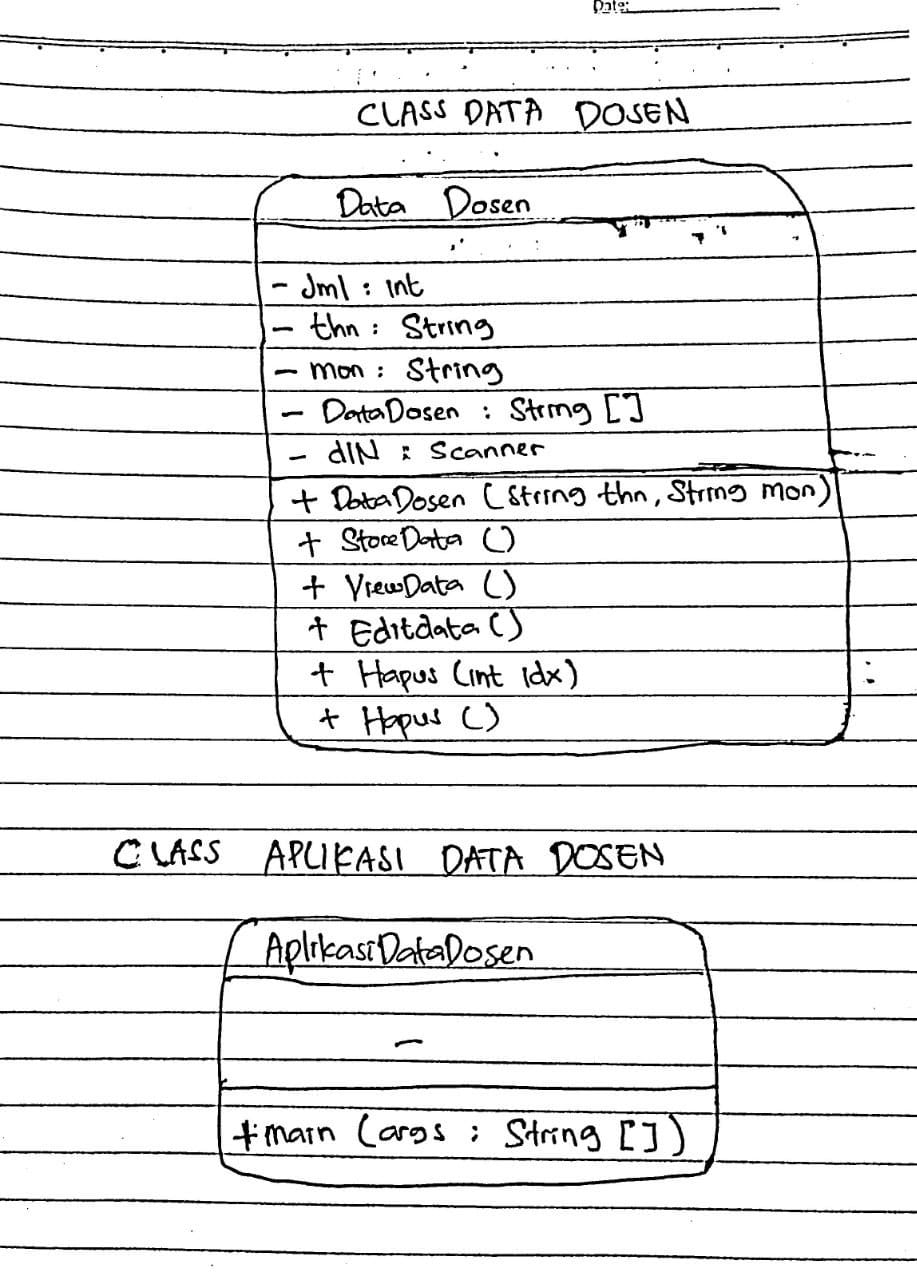 Date:
CLASS DATA DOSEN
Data Dosen
- Jml : int
- thn : String
- mon : String
- DataDosen : String []
- dIN : Scanner
+ DataDosen (String thn, String mon)
+ StoreData ()
+ ViewData ()
+ Editdata ()
+ Hapus (int idx)
+ Hapus ()
CLASS APLIKASI DATA DOSEN
AplikasiDataDosen
-
+ main (args : String [])